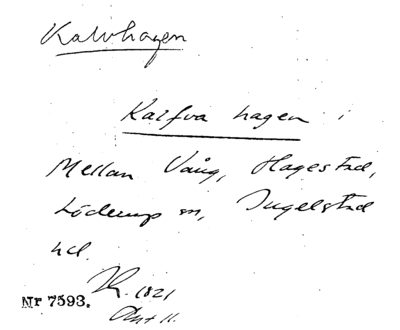 Kalvhagen
Kalfva hagen i
Mellan Vång, Hagestad,
Löderup sn, Ingelstad
hd.
1821
Akt 11.
Nr 7593.